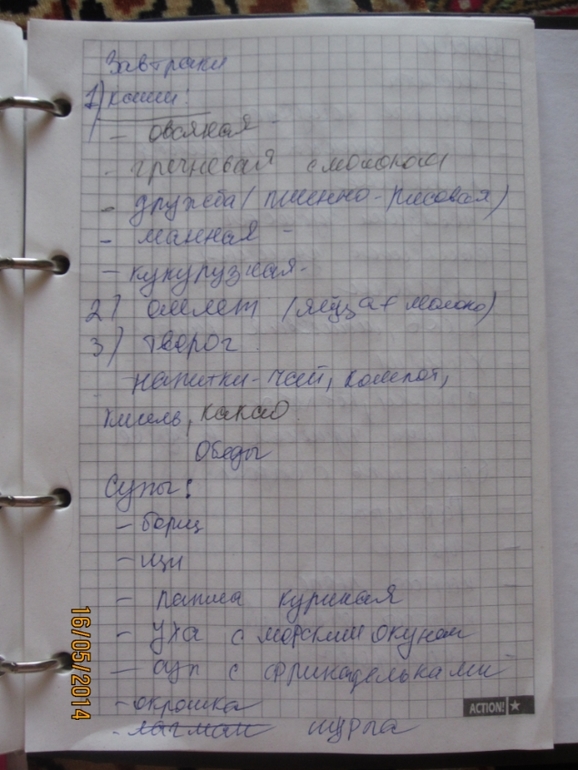 Завтраки
1) каши:
- овсяная -
- гречневая с молоком
- дружба (пшенно-рисовая)
- манная -
- кукурузная -
2) омлет (яйца + молоко)
3) творог.
напитки - чай, компот,
кисель, какао.
Обеды
Супы:
- борщ
- щи
- лапша куриная
- уха с морским окунем
- суп с фрикадельками
- окрошка
- лагман шурпа
ACTION!
16/05/2014